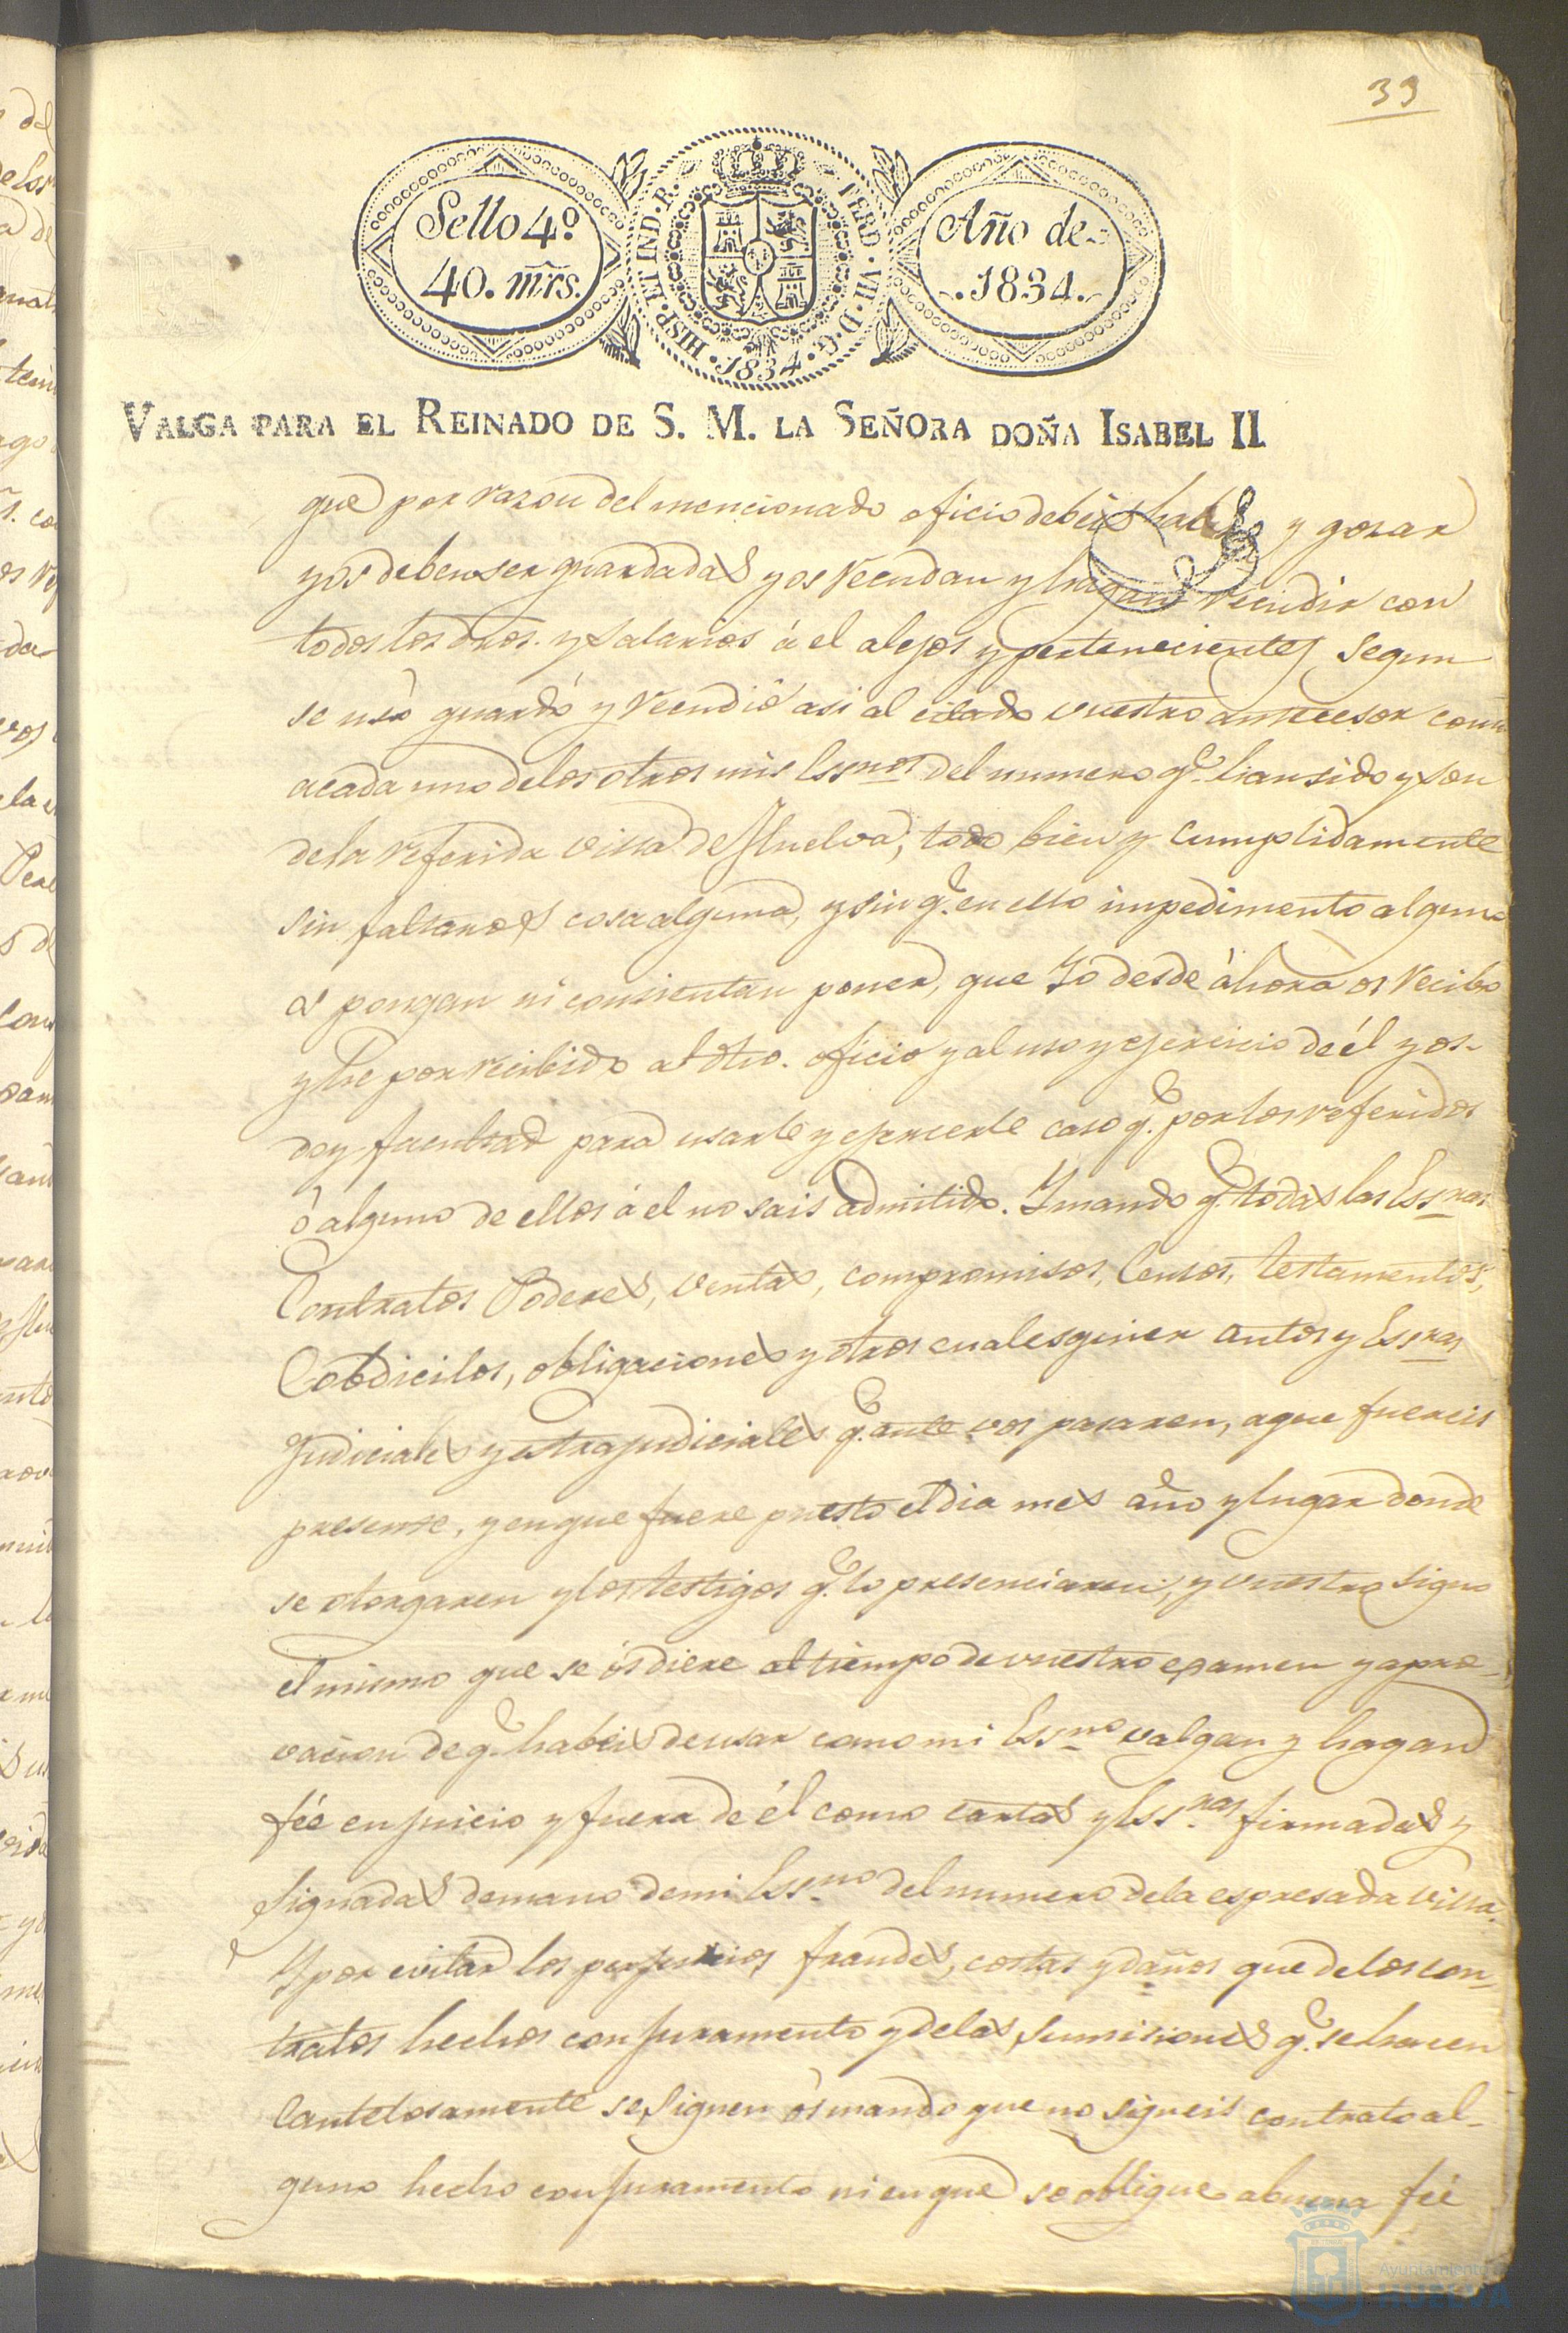 39
Sello 4º.
40. mrs.
HISP. ET IND. R.
FERD. VII. D. G.
1834.
Año de
1834.
VALGA PARA EL REINADO DE S. M. LA SEÑORA DOÑA ISABEL II.
que por razon del mencionado oficio debeis haber y gozar
y os deben ser guardadas y os recudan y hagan recudir con
todos los dros. y salarios á el alejos y pertenecientes segun
se usó guardó y recudió asi al citado vuestro antecesor como
acada uno delos otros mis Essnos del numero q.e han sido y son
dela referida villa de Huelva, todo bien y cumplidamente
sin faltaros cosa alguna, y sin q.e en ello impedimento alguno
os pongan ni consientan poner, que Yo desde ahora os recibo
y he por recibido al dho. oficio y al uso y ejercicio de él y os
doy facultad para usarle y ejercerle caso q.e por los referidos
ó alguno de ellos á el no sais admitido. Y mando q.e todas las Essras
Contratos Poderes, ventas, compromisos, Censos, testamentos,
Cobdicilos, obligaciones y otros cualesquier autos y Essras
Judiciales y estrajudiciales q.e ante vos pasaren, aque fuereis
presente, y en que fuere puesto el dia mes año y lugar donde
se otorgaren y los testigos q.e lo presenciaren, y vuestro signo
el mismo que se ós diere al tiempo de vuestro examen y apro-
vacion de q.e habeis de usar como mi Essno valgan y hagan
fée en juicio y fuera de él como cartas y Essras firmadas y
signadas demano demi Essno del numero dela espresada villa.
Y por evitar los perjuicios fraudes, costas y daños que delos con-
tratos hechos con juramento y delas sumisiones q.e se hacen
Cautelosamente se siguen ós mando que no signeis contrato al-
guno hecho con juramento ni en que se obligue abuena fée
Ayuntamiento
HUELVA